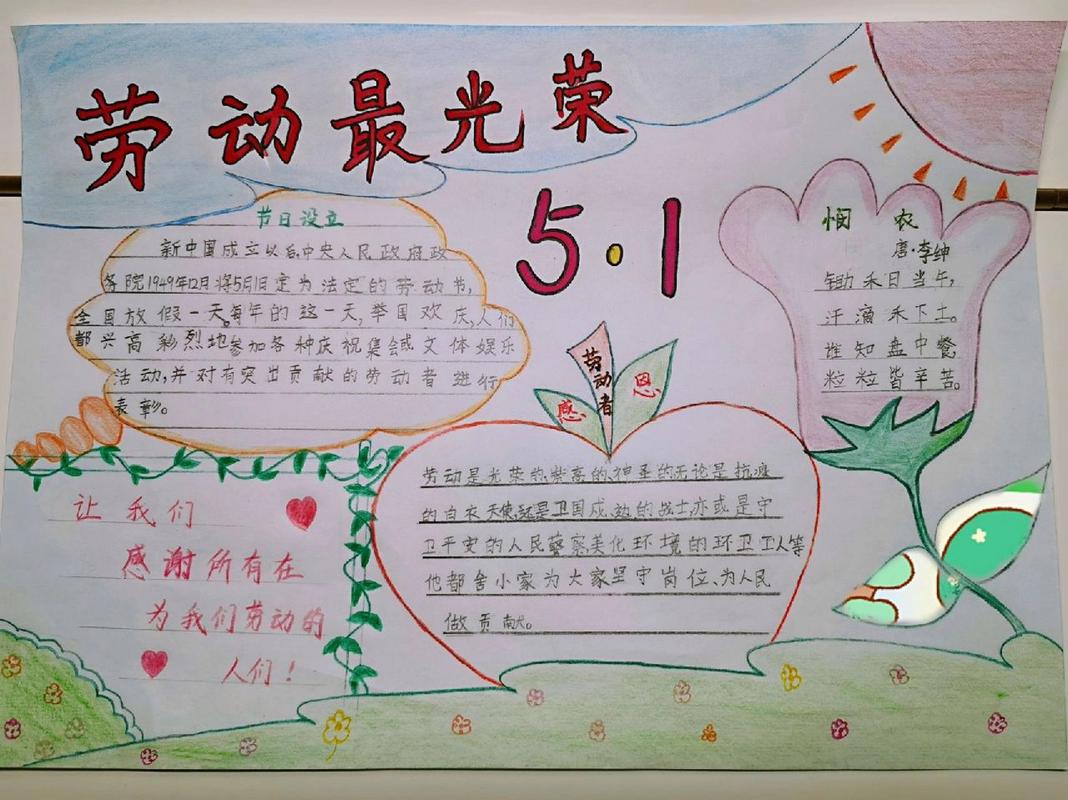 劳动最光荣
5·1
节日设立
新中国成立以后,中央人民政府政
务院1949年12月将5月1日定为法定的劳动节,
全国放假一天。每年的这一天,举国欢庆,人们
都兴高彩烈地参加各种庆祝集会或文体娱乐
活动,并对有突出贡献的劳动者进行
表彰。
悯农
唐·李绅
锄禾日当午,
汗滴禾下土。
谁知盘中餐
粒粒皆辛苦。
感
劳动者
恩
劳动是光荣的,崇高的,神圣的无论是抗疫
的白衣天使,还是卫国成边的战士,亦或是守
卫平安的人民警察美化环境的环卫工人等
他都舍小家为大家坚守岗位、为人民
做贡献。
让我们
感谢所有在
为我们劳动的
人们!